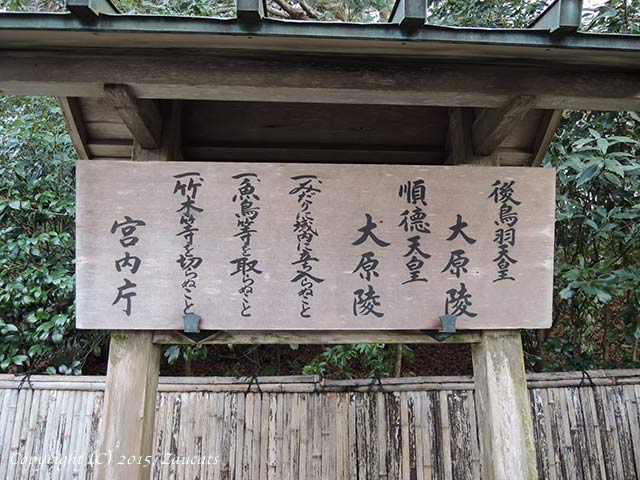 後鳥羽天皇
大原陵
順徳天皇
大原陵
一、みだりに域内に立入らぬこと
一、魚鳥等を取らぬこと
一、竹木等を切らぬこと
宮内庁
Copyright (C) 2015/Zaucats